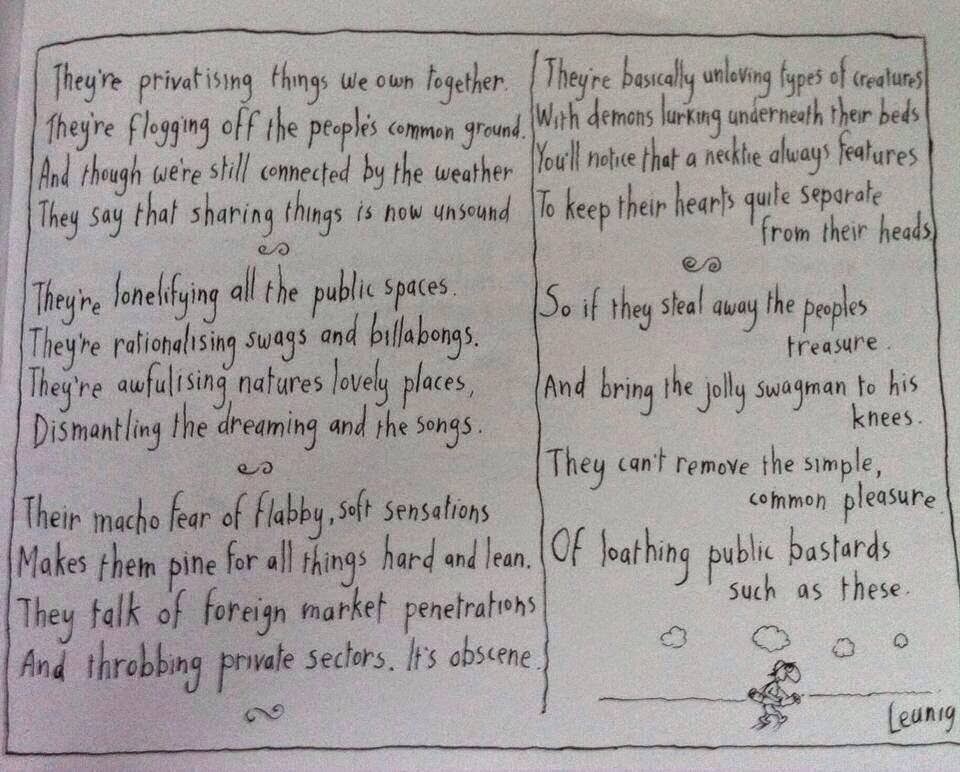 They're privatising things we own together.
They're flogging off the people's common ground.
And though we're still connected by the weather
They say that sharing things is now unsound
They're lonelifying all the public spaces.
They're rationalising swags and billabongs.
They're awfulising natures lovely places,
Dismantling the dreaming and the songs.
Their macho fear of flabby, soft sensations
Makes them pine for all things hard and lean.
They talk of foreign market penetrations
And throbbing private sectors. It's obscene.
They're basically unloving types of creatures
With demons lurking underneath their beds
You'll notice that a necktie always features
To keep their hearts quite separate
from their heads
So if they steal away the peoples
treasure.
And bring the jolly swagman to his
knees.
They can't remove the simple,
common pleasure
Of loathing public bastards
such as these.
Leunig